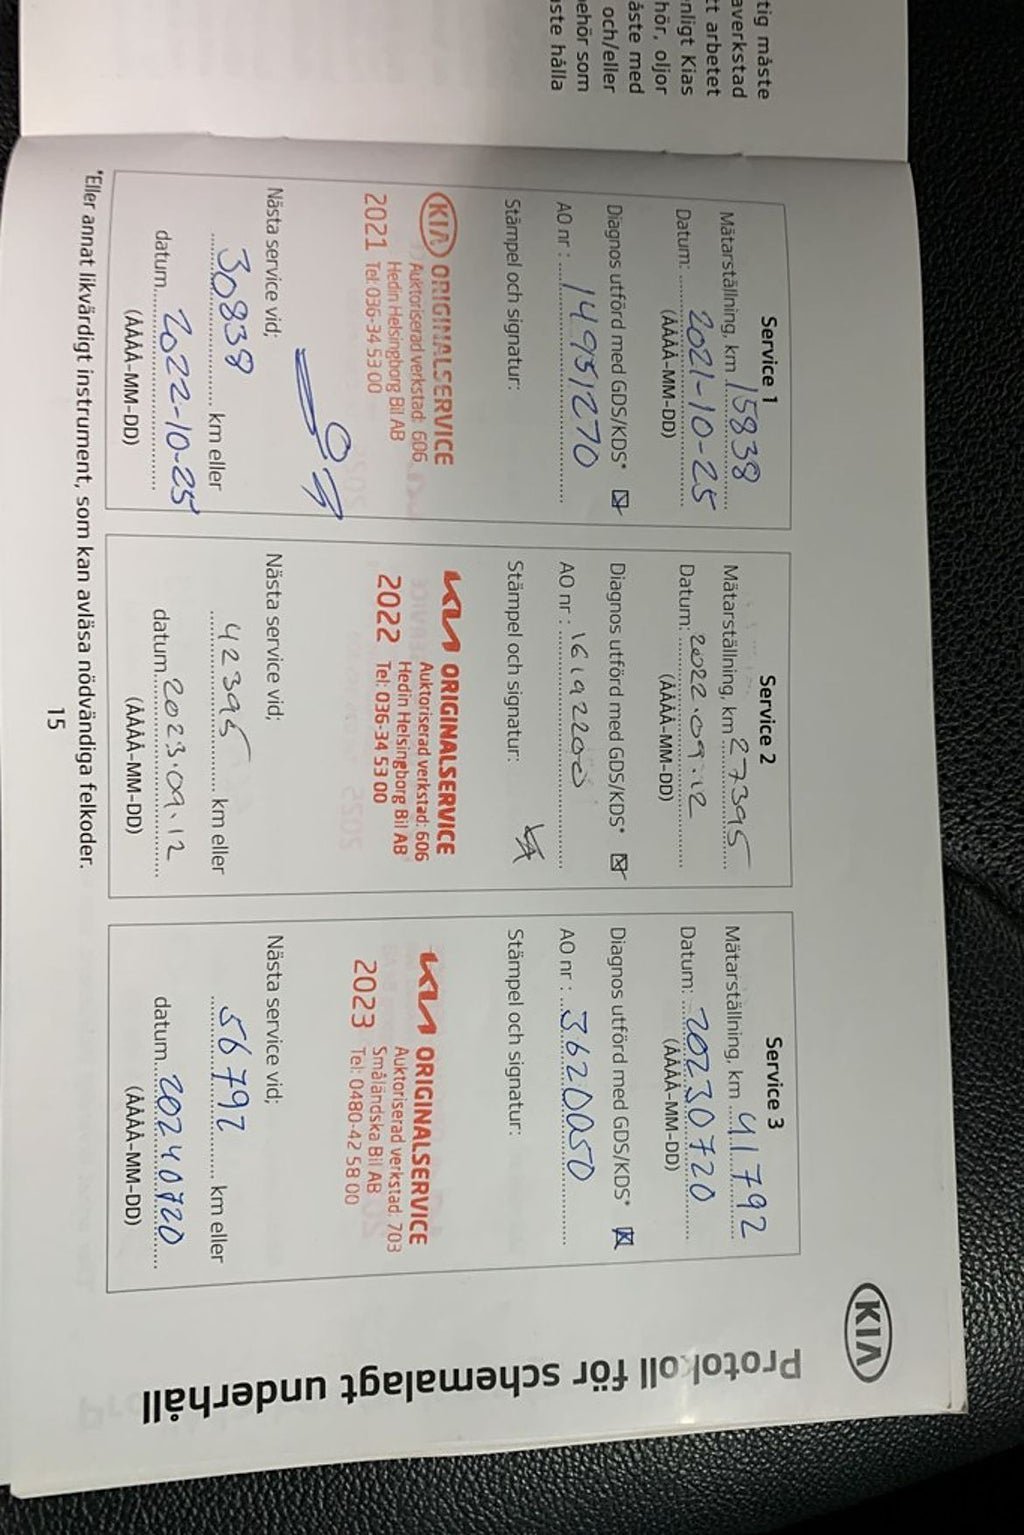 tig måste
averkstad
tt arbetet
enligt Kias
hör, oljor
åste med
och/eller
ehör som
åste hålla
KIA
Protokoll för schemalagt underhåll
Service 1
Mätarställning, km 15838
Datum: 2021-10-25
(ÅÅÅÅ-MM-DD)
Diagnos utförd med GDS/KDS*
AO nr : 14951270
Stämpel och signatur:
KIA ORIGINALSERVICE
Auktoriserad verkstad: 606
Hedin Helsingborg Bil AB
2021 Tel:036-34 53 00
Nästa service vid;
30838 km eller
datum 2022-10-25
(ÅÅÅÅ-MM-DD)
Service 2
Mätarställning, km 27395
Datum: 2022.09.12
(ÅÅÅÅ-MM-DD)
Diagnos utförd med GDS/KDS*
AO nr : 16192200
Stämpel och signatur:
KIA ORIGINALSERVICE
Auktoriserad verkstad: 606
Hedin Helsingborg Bil AB
2022 Tel: 036-34 53 00
Nästa service vid;
42395 km eller
datum 2023.09.12
(ÅÅÅÅ-MM-DD)
Service 3
Mätarställning, km 41792
Datum: 20230720
(ÅÅÅÅ-MM-DD)
Diagnos utförd med GDS/KDS*
AO nr : 3620050
Stämpel och signatur:
KIA ORIGINALSERVICE
Auktoriserad verkstad: 703
Småländska Bil AB
2023 Tel: 0480-42 58 00
Nästa service vid;
56792 km eller
datum 20240720
(ÅÅÅÅ-MM-DD)
*Eller annat likvärdigt instrument, som kan avläsa nödvändiga felkoder.
15